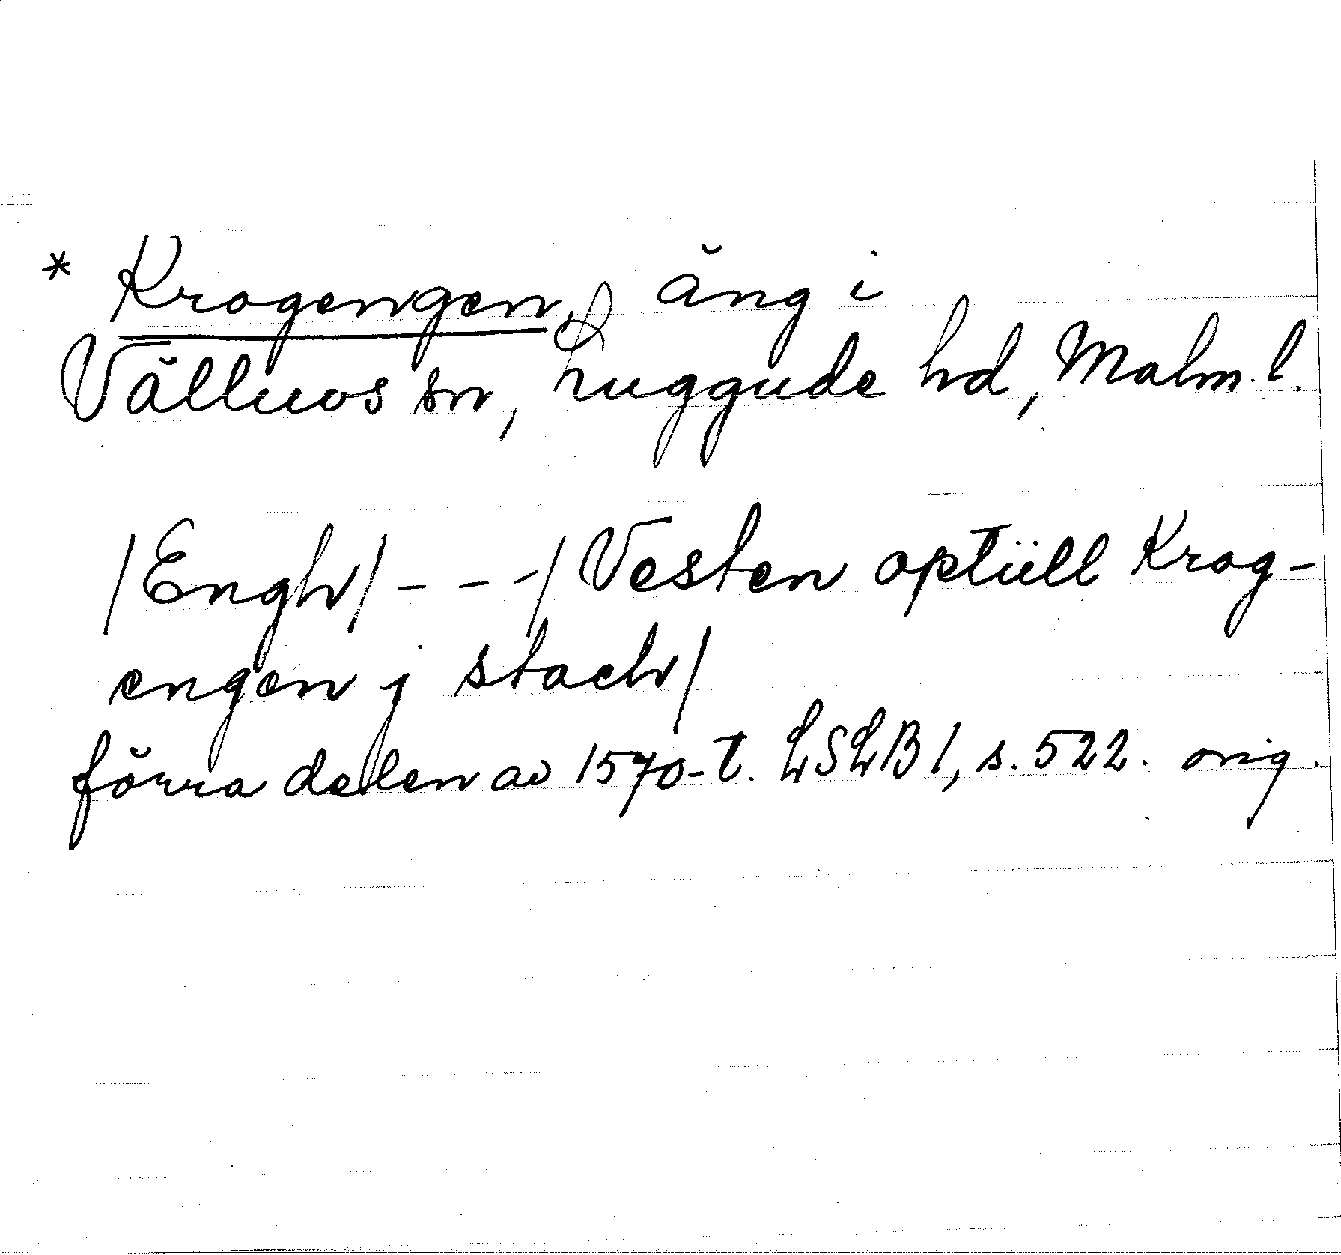 * Krogengen, äng i
Välluvs sn, Luggude hd, Malm. l.
/Engh/ - - -/ Vesten optüll Krog-
engen j stach/
förra delen av 1570-t. LSLB 1, s. 522. orig.